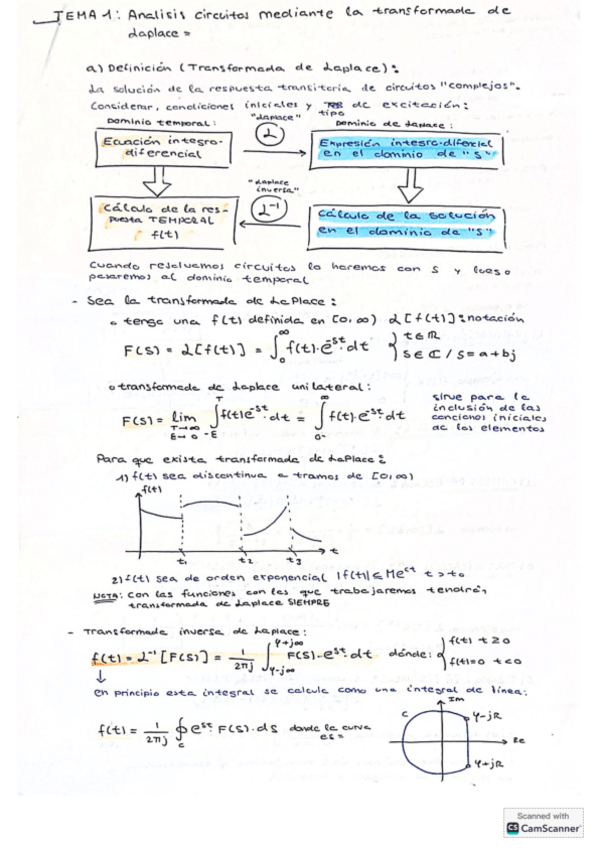 TEMA 1: Analisis circuitos mediante la transformada de
Laplace =
a) Definición (Transformada de Laplace):
La solución de la respuesta transitoria de circuitos "complejos".
Considerar, condiciones iniciales y tipo de excitación:
Dominio temporal: "Laplace" Dominio de Laplace:
Ecuación integro-
diferencial
ℒ
Expresión integro-diferencial
en el dominio de "s"
"Laplace
inversa"
ℒ⁻¹
Cálculo de la res-
puesta TEMPORAL
f(t)
Cálculo de la solución
en el dominio de "s"
Cuando resolvemos circuitos lo haremos con S y luego
pasaremos al dominio temporal
- Sea la transformada de LaPlace:
o tengo una f(t) definida en [0,∞) ℒ[f(t)]: notación
F(s) = ℒ[f(t)] = ∫₀^∞ f(t)·e^st·dt { t∈ℝ
s∈ℂ / s=a+bj
o transformada de Laplace unilateral:
F(s) = lim T→∞ E→0 ∫_-E^T f(t)e^st·dt = ∫_0-^∞ f(t)·e^st dt
sirve para la
inclusión de las
canciones iniciales
de los elementos
Para que exista transformada de LaPlace:
1) f(t) sea discontinua a tramos de [0,∞)
f(t)
t₁ t₂ t₃ t
2) f(t) sea de orden exponencial |f(t)| ≤ Me^ct t>t₀
NOTA: con las funciones con las que trabajaremos tendrán
transformada de Laplace SIEMPRE
- Transformada inversa de Laplace:
f(t) = ℒ⁻¹[F(s)] = 1/2πj ∫_φ-j∞^φ+j∞ F(s)·e^st·dt dónde: { f(t) t≥0
f(t)=0 t<0
↓
en principio esta integral se calcula como una integral de línea:
f(t) = 1/2πj ∮_c e^st·F(s)·ds donde la curva
es =
Im
C
φ-jR
Re
φ+jR
Scanned with
CS CamScanner